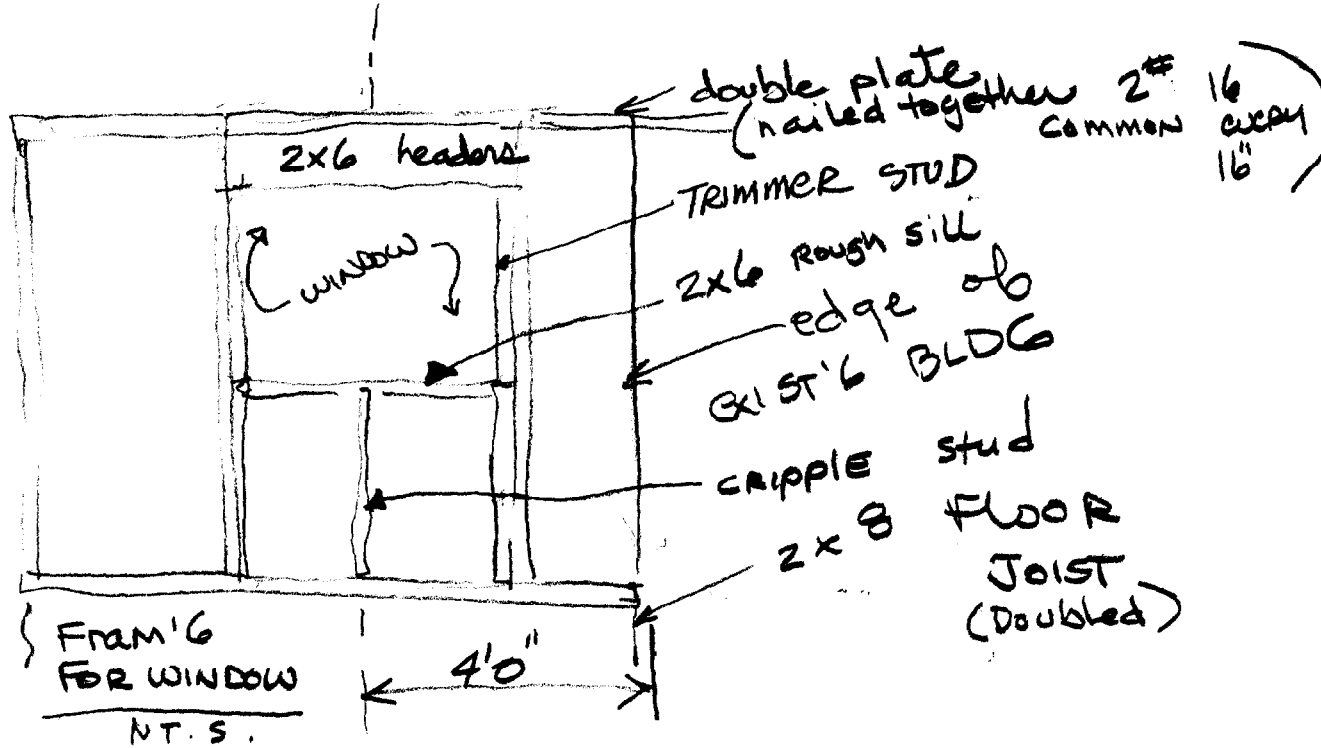 double plate
(nailed together 2# 16
common every
16")
2x6 headers
TRIMMER STUD
WINDOW
2x6 Rough sill
edge of
EXIST'G BLDG
CRIPPLE stud
2 x 8 FLOOR
JOIST
(Doubled)
Fram'G
FOR WINDOW
N.T.S.
4'0"